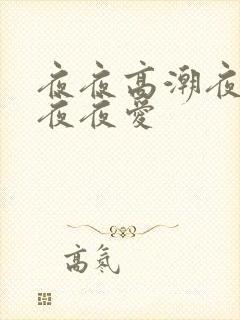 夜夜高潮夜
夜夜爱
高氣